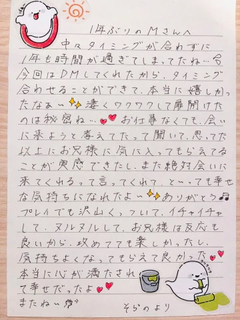 1年ぶりのMさんへ
中々タイミングが合わずに
1年も時間が過ぎてしまってたね…
今回はDMしてくれたから、タイミング
合わせることができて、本当に嬉しかっ
たなぁー 凄くワクワクして扉開けた
のは秘密ね…♥♥ お仕事なくても、会い
に来ようと考えてたって聞いて、思ってた
以上にお兄様に気に入ってもらえてる
ことが実感できたし、また絶対会いに
来てくれるって言ってくれて、とーっても幸せ
な気持ちになれたよー ありがとう♪
プレイでも沢山くっついて、イチャイチャ
して、ヌルヌルして、お兄様は反応も
良いから、攻めてても楽しかったし、
気持ちよくなってもらえて良かった♥♥
本当に心が満たされ
て幸せだったよ
またねー
そらのより